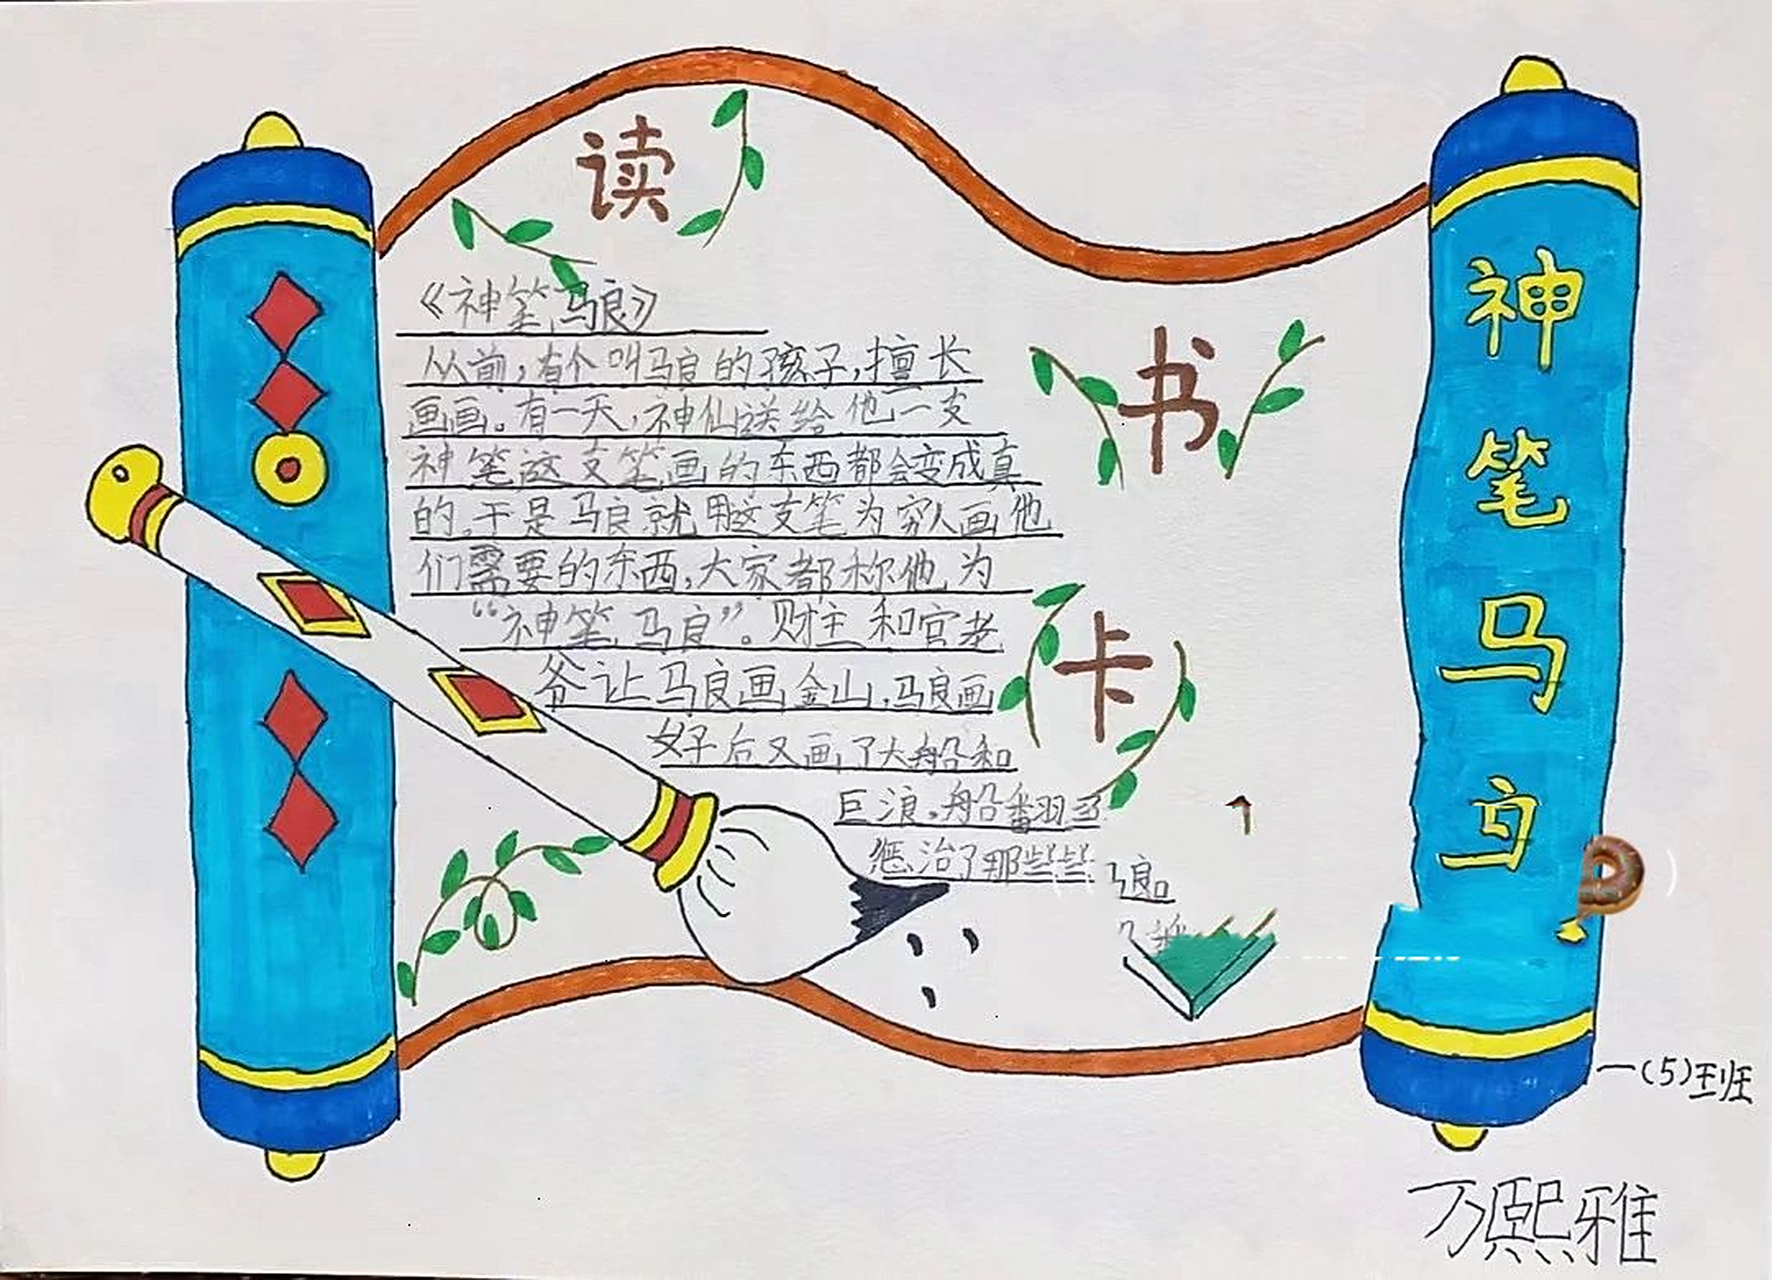 读
书
卡
《神笔马良》
从前，有个叫马良的孩子，擅长
画画。有一天，神仙送给他一支
神笔这支笔画的东西都会变成真
的。于是马良就用这支笔为穷人画他
们需要的东西，大家都称他为
“神笔马良”。财主和官老
爷让马良画金山，马良画
好后又画了大船和
巨浪。船翻
惩治了那些
神笔马
一（5）班
万熙雅